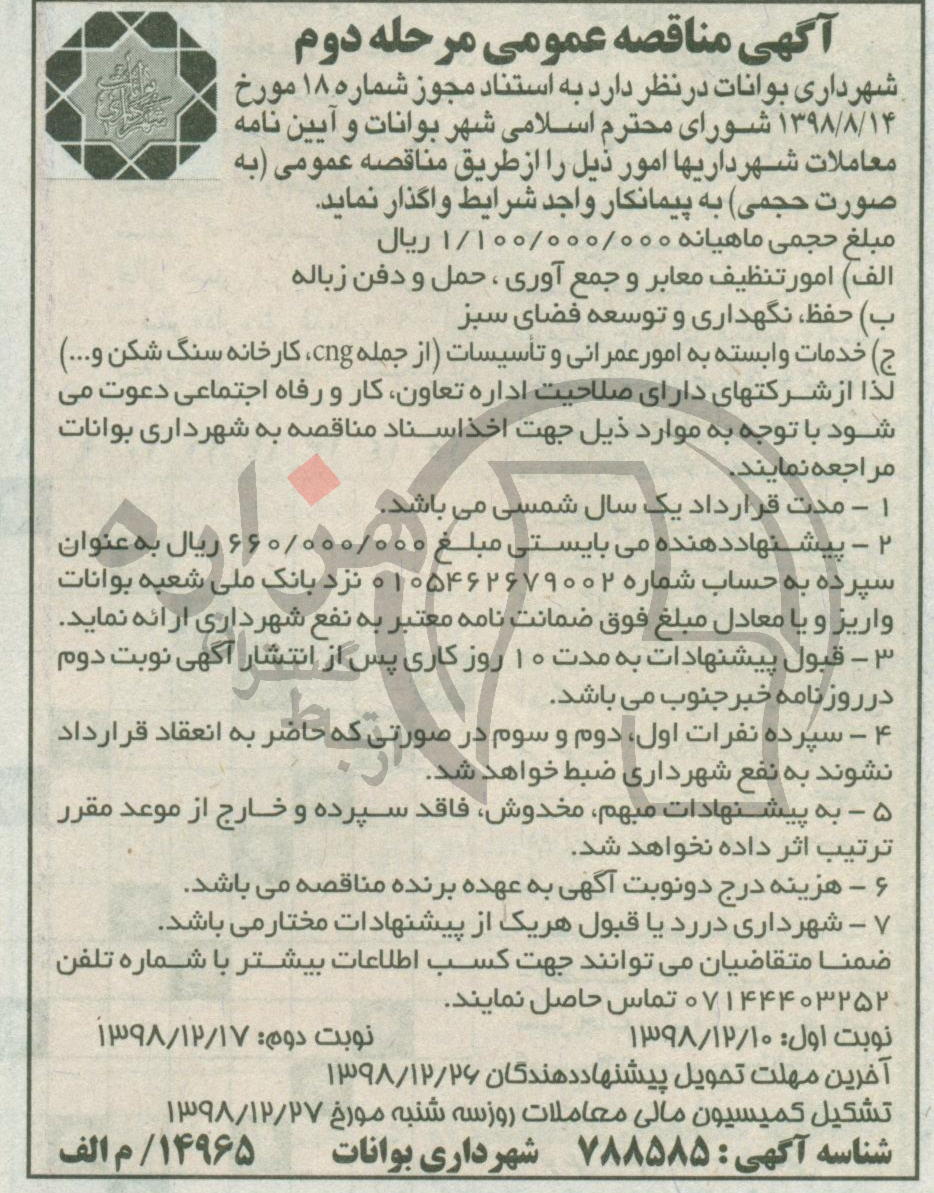 آگهی مناقصه عمومی مرحله دوم
شهرداری بوانات در نظر دارد به استناد مجوز شماره ۱۸ مورخ
۱۳۹۸/۸/۱۴ شورای محترم اسلامی شهر بوانات و آیین نامه
معاملات شهرداریها امور ذیل را از طریق مناقصه عمومی (به
صورت حجمی) به پیمانکار واجد شرایط واگذار نماید.
مبلغ حجمی ماهیانه ۱/۱۰۰/۰۰۰/۰۰۰ ریال
الف) امور تنظیف معابر و جمع آوری ، حمل و دفن زباله
ب) حفظ، نگهداری و توسعه فضای سبز
ج) خدمات وابسته به امور عمرانی و تأسیسات (از جمله cng، کارخانه سنگ شکن و...)
لذا از شرکتهای دارای صلاحیت اداره تعاون، کار و رفاه اجتماعی دعوت می
شود با توجه به موارد ذیل جهت اخذ اسناد مناقصه به شهرداری بوانات
مراجعه نمایند.
۱ - مدت قرارداد یک سال شمسی می باشد.
۲ - پیشنهاددهنده می بایستی مبلغ ۶۶۰/۰۰۰/۰۰۰ ریال به عنوان
سپرده به حساب شماره ۰۱۰۵۴۶۲۶۷۹۰۰۲ نزد بانک ملی شعبه بوانات
واریز و یا معادل مبلغ فوق ضمانت نامه معتبر به نفع شهرداری ارائه نماید.
۳ - قبول پیشنهادات به مدت ۱۰ روز کاری پس از انتشار آگهی نوبت دوم
در روزنامه خبر جنوب می باشد.
۴ - سپرده نفرات اول، دوم و سوم در صورتی که حاضر به انعقاد قرارداد
نشوند به نفع شهرداری ضبط خواهد شد.
۵ - به پیشنهادات مبهم، مخدوش، فاقد سپرده و خارج از موعد مقرر
ترتیب اثر داده نخواهد شد.
۶ - هزینه درج دو نوبت آگهی به عهده برنده مناقصه می باشد.
۷ - شهرداری در رد یا قبول هریک از پیشنهادات مختار می باشد.
ضمنا متقاضیان می توانند جهت کسب اطلاعات بیشتر با شماره تلفن
۰۷۱۴۴۴۰۳۲۵۲ تماس حاصل نمایند.
نوبت اول: ۱۳۹۸/۱۲/۱۰ نوبت دوم: ۱۳۹۸/۱۲/۱۷
آخرین مهلت تحویل پیشنهاددهندگان ۱۳۹۸/۱۲/۲۶
تشکیل کمیسیون مالی معاملات روز سه شنبه مورخ ۱۳۹۸/۱۲/۲۷
شناسه آگهی : ۷۸۸۵۸۵ شهرداری بوانات ۱۴۹۶۵/ م الف